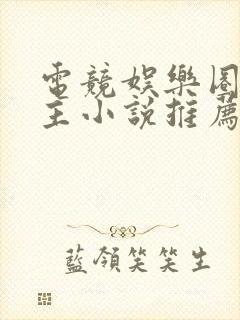 電競娛樂圈
主小說推薦
藍領笑笑生